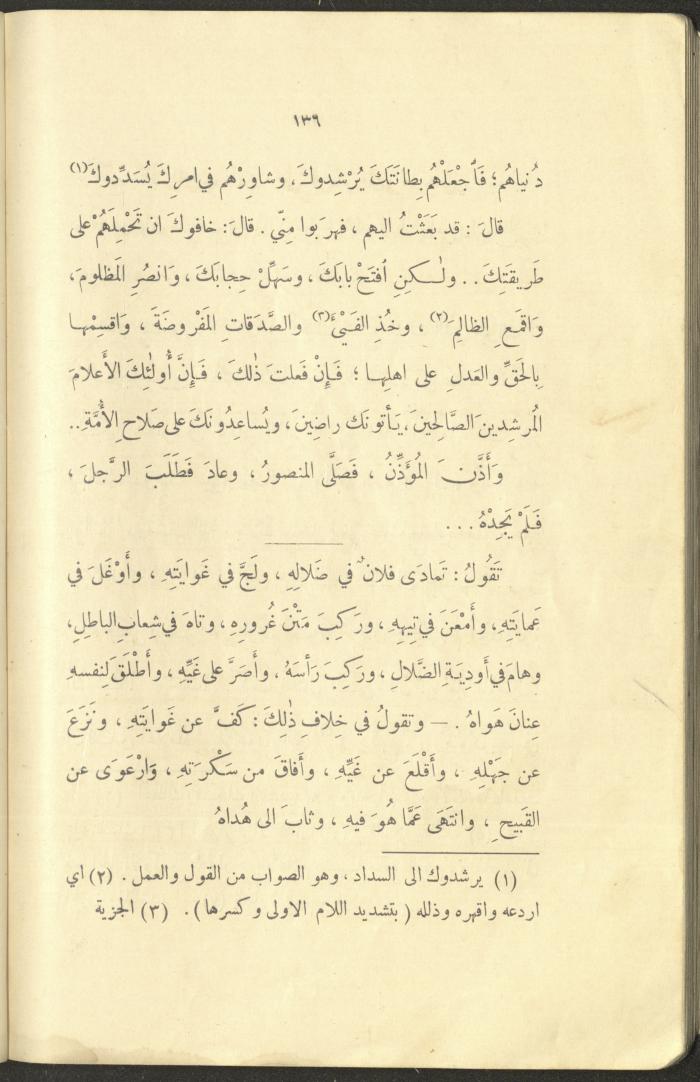 ١٣٦
دُنياهُم؛ فَاَجْعَلْهُم بِطانَتَكَ يُرْشِدوكَ، وشاوِرْهُم في امرِكَ يُسَدِّدوكَ(١)
قالَ : قد بَعَثْتُ اليهم ، فهرَبوا مِنّي . قالَ : خافوكَ ان تَحْمِلَهُمْ على
طَريقَتِكَ . . ولٰكنِ ٱفتَحْ بابَكَ ، وسَهِّلْ حِجابَكَ ، وَانصُرِ المَظلومَ ،
وَاقمَعِ الظالِمَ(٢) ، وخُذِ الفَيْءَ(٣) والصَّدَقاتِ المَفْروضَةَ ، وَاقسِمْها
بِالحَقِّ والعَدلِ على اهلِها ؛ فَإِنْ فَعلتَ ذٰلكَ ، فَإِنَّ أُولئِكَ الأَعلامَ
المُرشِدينَ الصَّالِحينَ، يَأتونَك راضِينَ ، ويُساعِدُونَكَ على صَلاحِ الأُمَّةِ . .
وَأَذَّنَ المُؤَذِّنُ ، فَصَلَّى المنصورُ ، وعادَ فَطَلَبَ الرَّجلَ ،
فَلَمْ يَجِدْهُ . . .
تَقُولُ : تَمادَى فلانٌ في ضَلالِهِ ، ولَجَّ في غَوايَتِهِ ، وأَوْغَلَ في
عَمايَتِهِ ، وأَمْعَنَ في تِيهِهِ ، ورَكِبَ مَتْنَ غُرورِهِ ، وتاهَ في شِعابِ الباطِلِ،
وهامَ في أَودِيَةِ الضَّلالِ ، ورَكِبَ رَأسَهُ ، وأَصَرَّ على غَيِّهِ ، وأَطْلَقَ لِنفسهِ
عِنانَ هَواهُ . — وتقولُ في خِلافِ ذٰلِكَ : كَفَّ عن غَوايَتِهِ ، ونَزَعَ
عن جَهْلِهِ ، وأَقْلَعَ عن غَيِّهِ ، وأَفاقَ من سَكْرَتِهِ ، وَارْعَوَى عن
القَبيحِ ، وانتَهَى عَمَّا هُوَ فيهِ ، وثابَ الى هُداهُ
(١) يرشدوك الى السداد ، وهو الصواب من القول والعمل . (٢) اي
اردعه واقهره وذلله ( بتشديد اللام الاولى وكسرها ) . (٣) الجزية